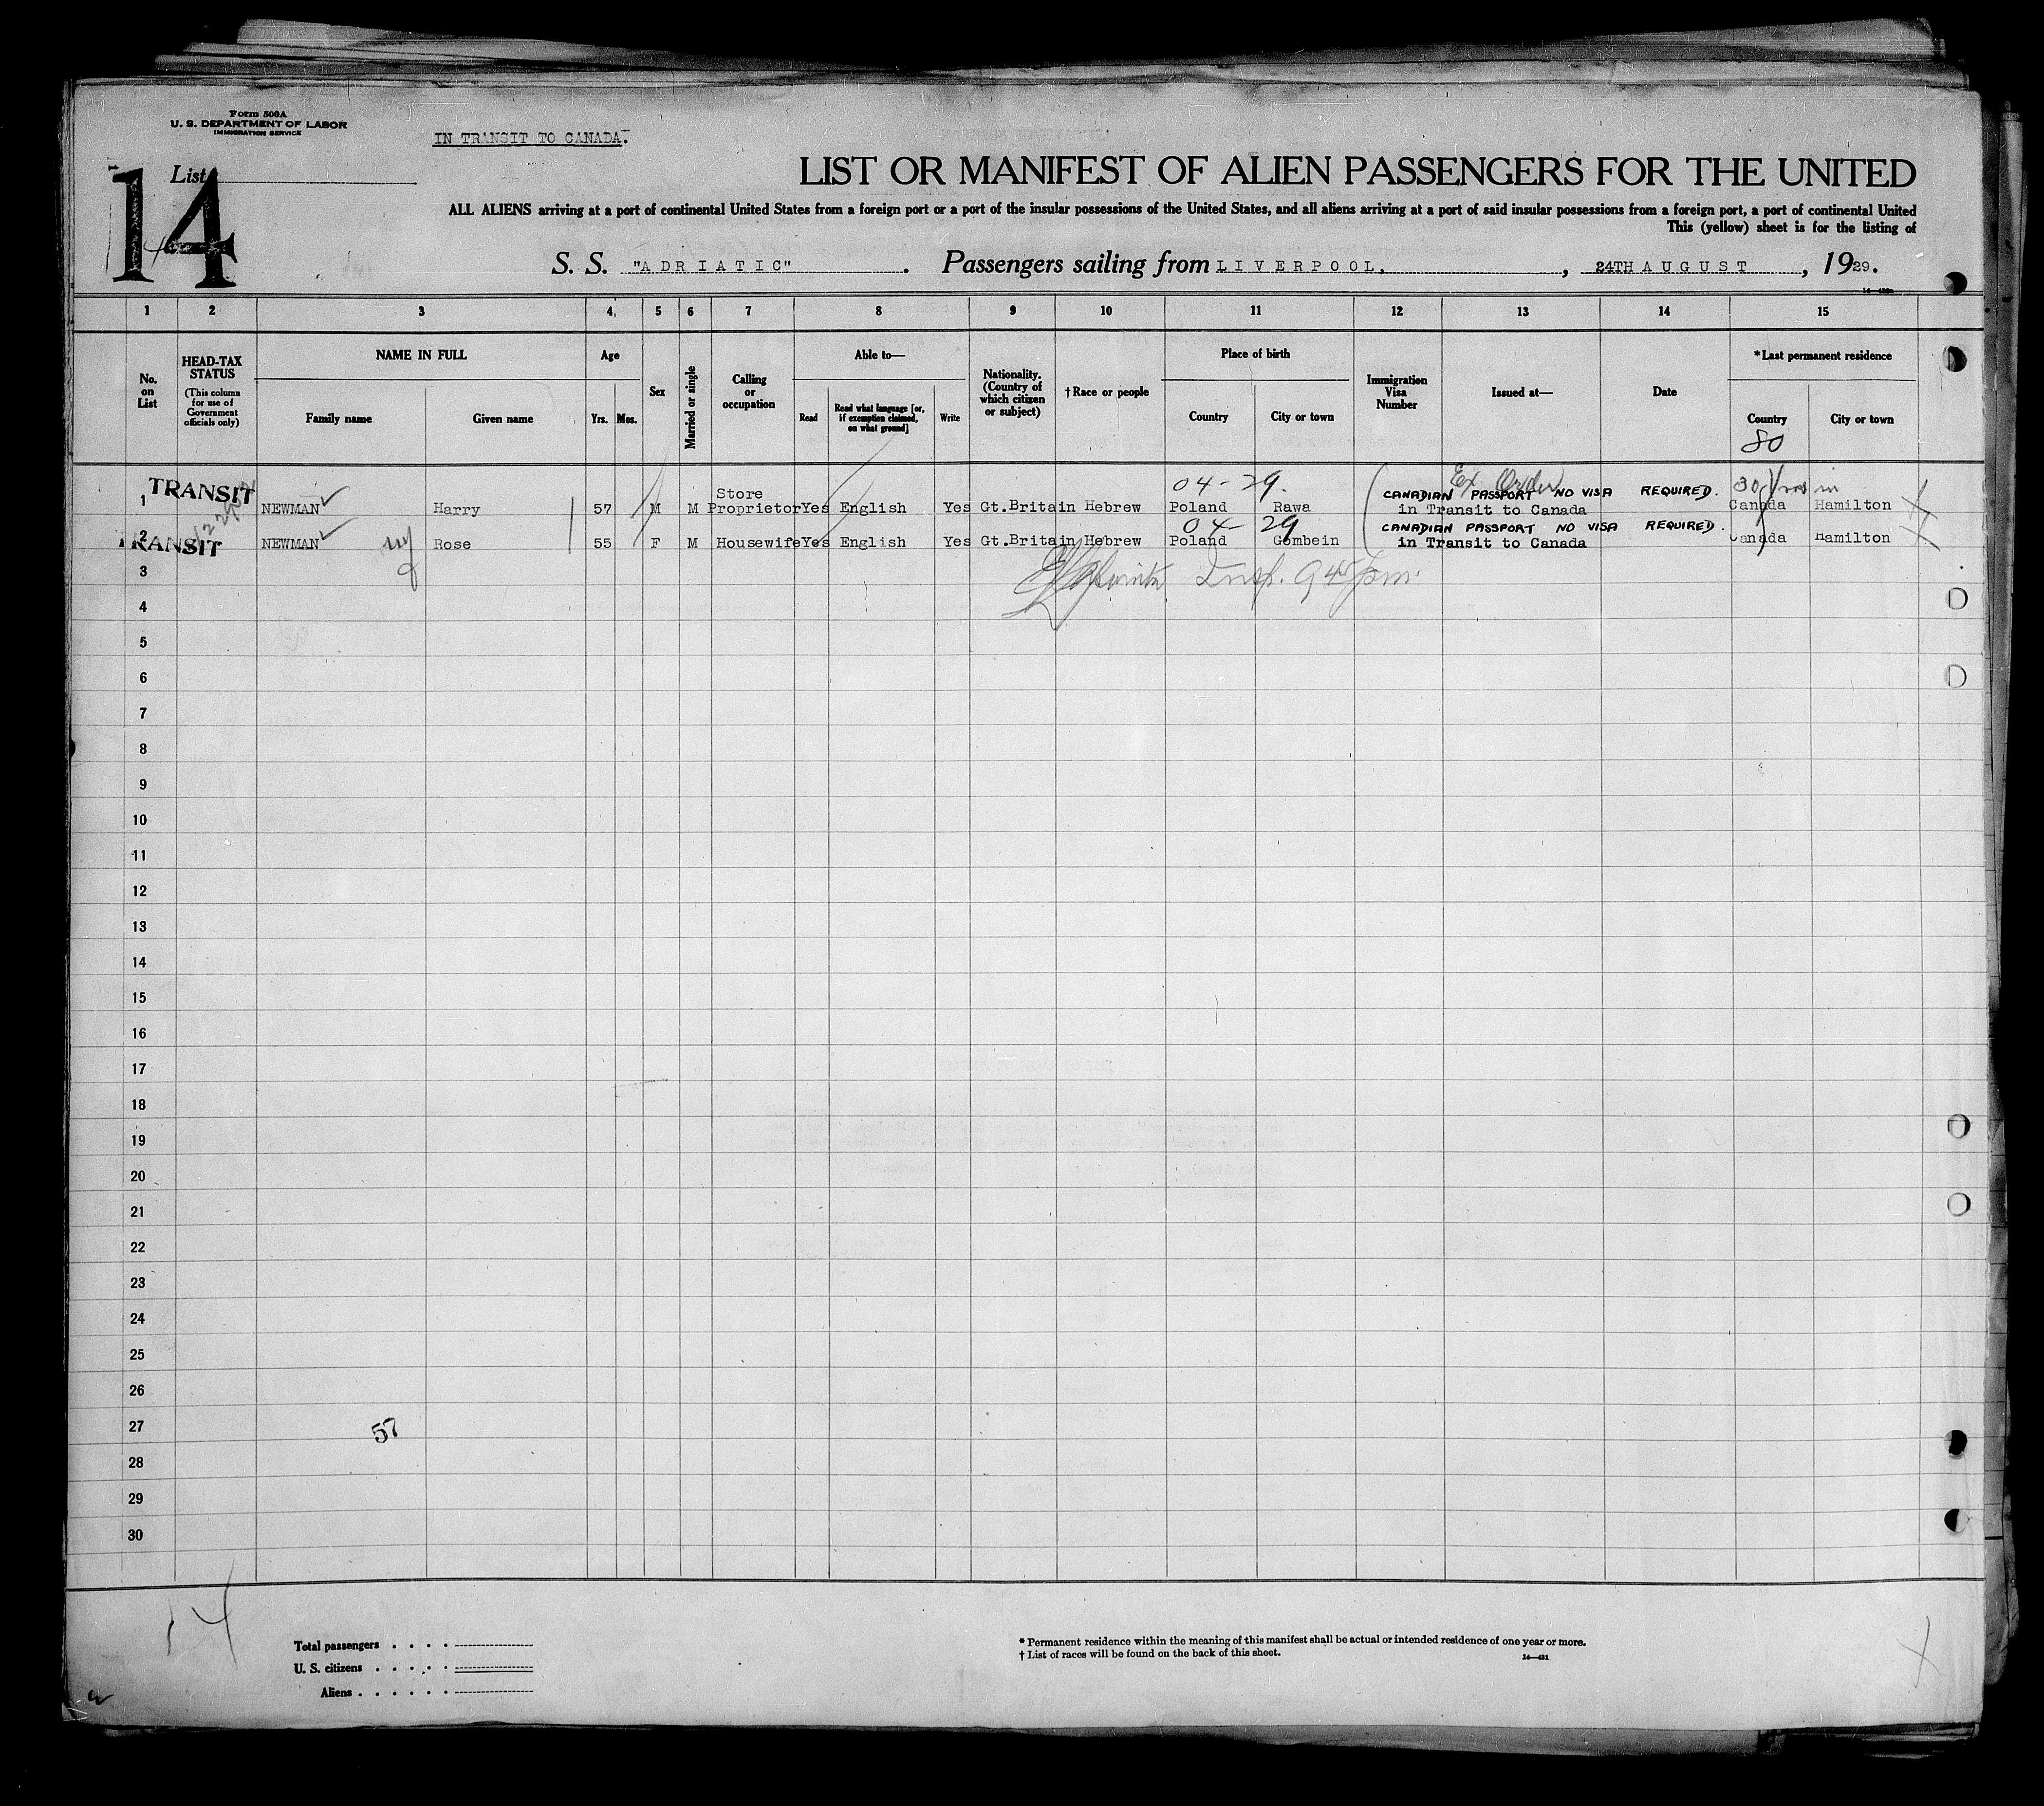 Form 500A
U. S. DEPARTMENT OF LABOR
IMMIGRATION SERVICE
IN TRANSIT TO CANADA.
List
14
LIST OR MANIFEST OF ALIEN PASSENGERS FOR THE UNITED
ALL ALIENS arriving at a port of continental United States from a foreign port or a port of the insular possessions of the United States, and all aliens arriving at a port of said insular possessions from a foreign port, a port of continental United
This (yellow) sheet is for the listing of
S. S. "ADRIATIC". Passengers sailing from LIVERPOOL, , 24TH AUGUST , 1929.
1 2 3 4 5 6 7 8 9 10 11 12 13 14 15
No. on List
HEAD-TAX STATUS
(This column for use of Government officials only)
NAME IN FULL
Family name Given name
Age
Yrs. Mos.
Sex
Married or single
Calling or occupation
Able to—
Read
Read what language [or, if exemption claimed, on what ground]
Write
Nationality. (Country of which citizen or subject)
†Race or people
Place of birth
Country City or town
Immigration Visa Number
Issued at—
Date
*Last permanent residence
Country City or town
80
04-29. Ex. Order 30 Yrs in
TRANSIT 1 NEWMAN Harry 57 M M Store Proprietor Yes English Yes Gt.Britain Hebrew Poland Rawa CANADIAN PASSPORT NO VISA REQUIRED. in Transit to Canada Canada Hamilton
04-29
TRANSIT 2 NEWMAN Rose 55 F M Housewife Yes English Yes Gt.Britain Hebrew Poland Gombein CANADIAN PASSPORT NO VISA REQUIRED. in Transit to Canada Canada Hamilton
3
Insp. 9 45 pm.
4
5
6
7
8
9
10
11
12
13
14
15
16
17
18
19
20
21
22
23
24
25
26
27
57
28
29
30
14
Total passengers . . . .
U. S. citizens . . . . .
Aliens . . . . . .
* Permanent residence within the meaning of this manifest shall be actual or intended residence of one year or more.
† List of races will be found on the back of this sheet.
14—431